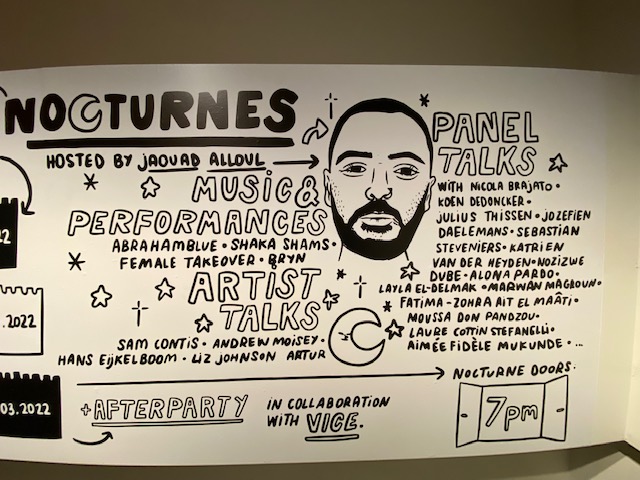 NOCTURNES
HOSTED BY JAOUAD ALLOUL
MUSIC &
PERFORMANCES
ABRAHAMBLUE • SHAKA SHAMS •
FEMALE TAKEOVER • BRYN
ARTIST
TALKS
SAM CONTIS • ANDREW MOISEY •
HANS EIJKELBOOM • LIZ JOHNSON ARTUR
PANEL
TALKS
WITH NICOLA BRAJATO •
KOEN DEDONCKER •
JULIUS THISSEN • JOZEFIEN
DAELEMANS • SEBASTIAN
STEVENIERS • KATRIEN
VAN DER HEYDEN • NOZIZWE
DUBE • ALONA PARDO •
LAYLA EL-DELMAK • MARWAN MAGROUN •
FATIMA-ZOHRA AIT EL MAÂTI •
MOUSSA DON PANDZOU •
LAURE COTTIN STEFANELLI •
AIMÉE FIDÈLE MUKUNDE • ...
2
.2022
03.2022
+ AFTERPARTY
IN COLLABORATION
WITH VICE.
NOCTURNE DOORS:
7pm